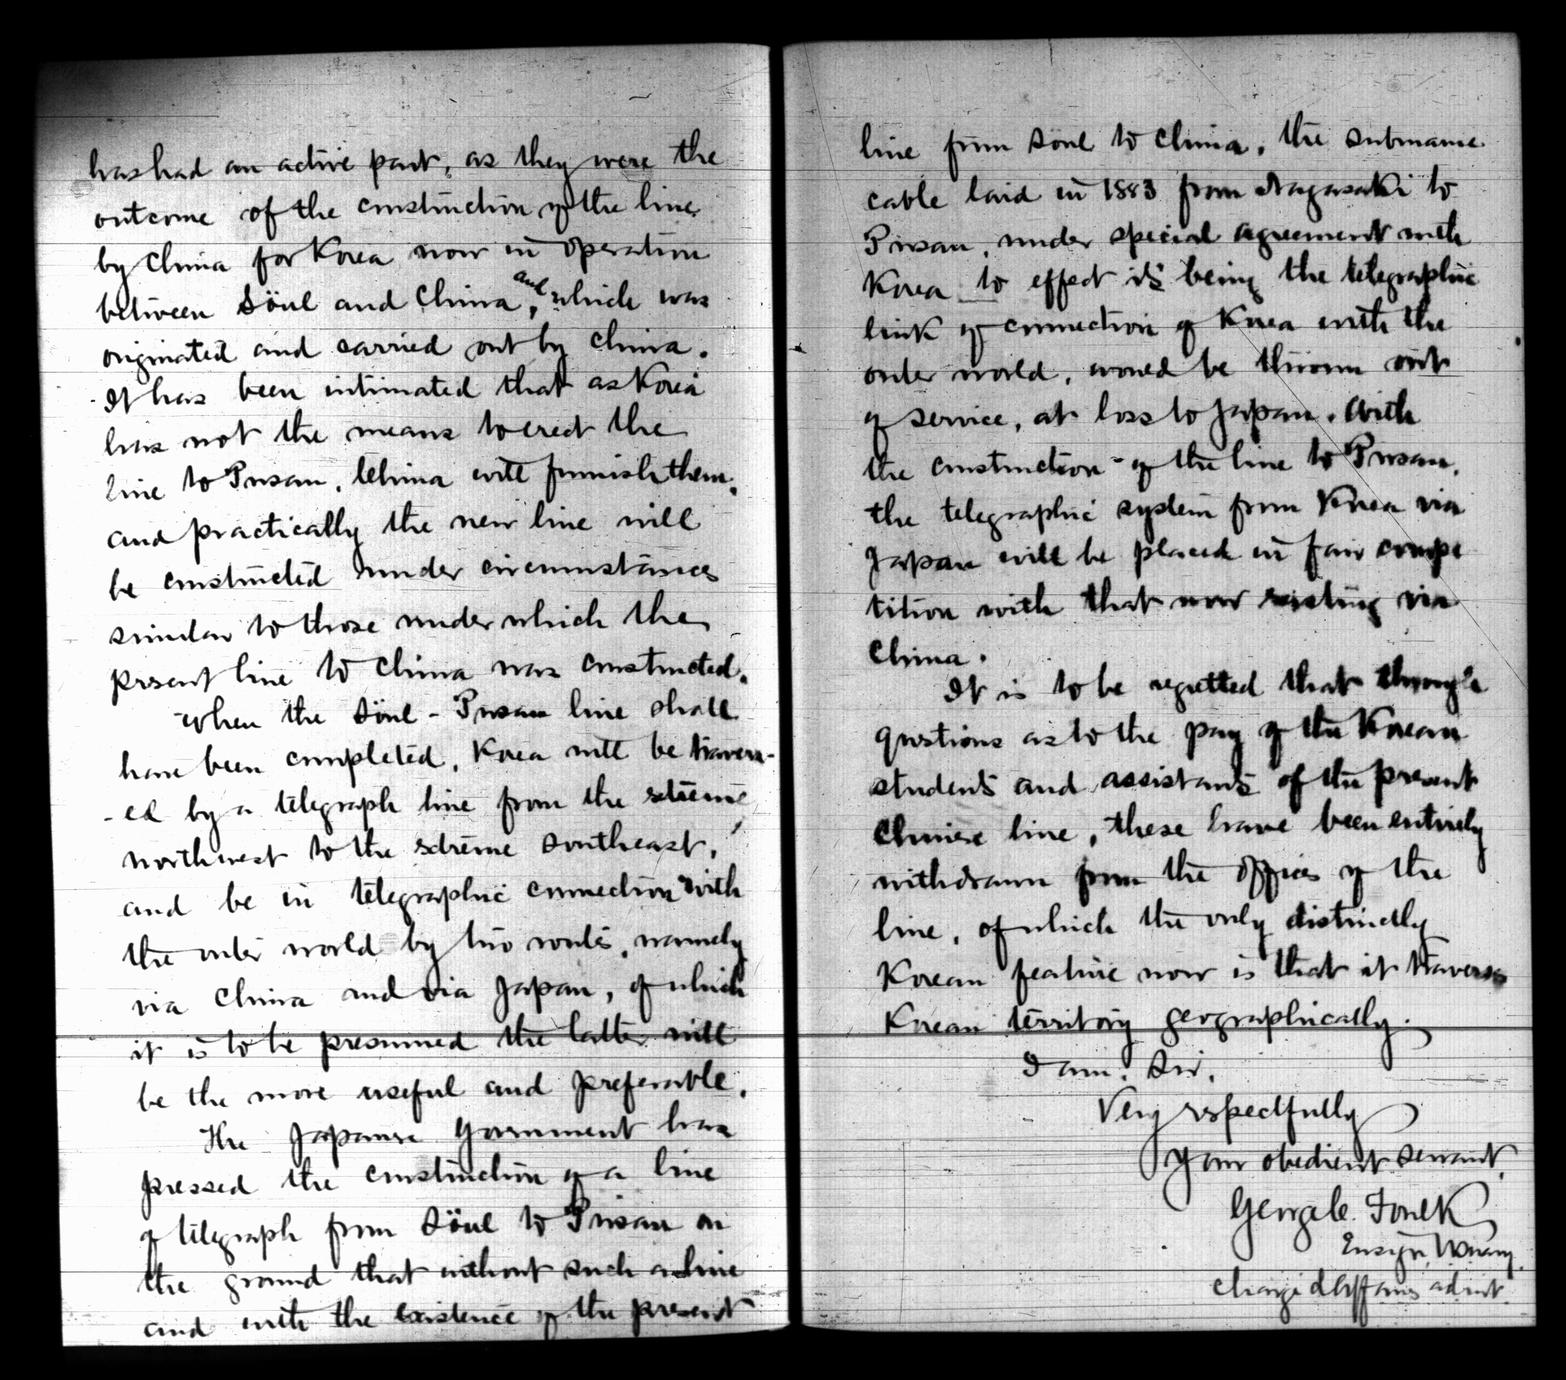 has had an active part, as they were the
outcome of the construction of the line
by China for Korea now in operation
between Söul and China, and which was
originated and carried out by China.
It has been intimated that as Korea
has not the means to erect the
line to Pusan, China will furnish them,
and practically the new line will
be constructed under circumstances
similar to those under which the
present line to China was constructed.
When the Söul - Pusan line shall
have been completed, Korea will be travers-
-ed by a telegraph line from the extreme
northwest to the extreme southeast,
and be in telegraphic connection with
the outer world by two routes, namely
via China and via Japan, of which
it is to be presumed the latter will
be the more useful and preferable.
The Japanese Government has
pressed the construction of a line
of telegraph from Söul to Pusan on
the ground that without such a line
and with the existence of the present
line from Söul to China, the submarine
cable laid in 1883 from Nagasaki to
Pusan, under special agreement with
Korea to effect its being the telegraphic
link of connection of Korea with the
outer world, would be thrown out
of service, at loss to Japan. With
the construction of the line to Pusan,
the telegraphic system from Korea via
Japan will be placed in fair compe
tition with that now existing via
China.
It is to be regretted that through
questions as to the pay of the Korean
students and assistants of the present
Chinese line, these have been entirely
withdrawn from the offices of the
line, of which the only distinctly
Korean feature now is that it traverses
Korean territory geographically.
I am, Sir,
Very respectfully
Your obedient servant,
George C. Foulk
Ensign, U.S. Navy,
Chargé d'Affaires ad int.